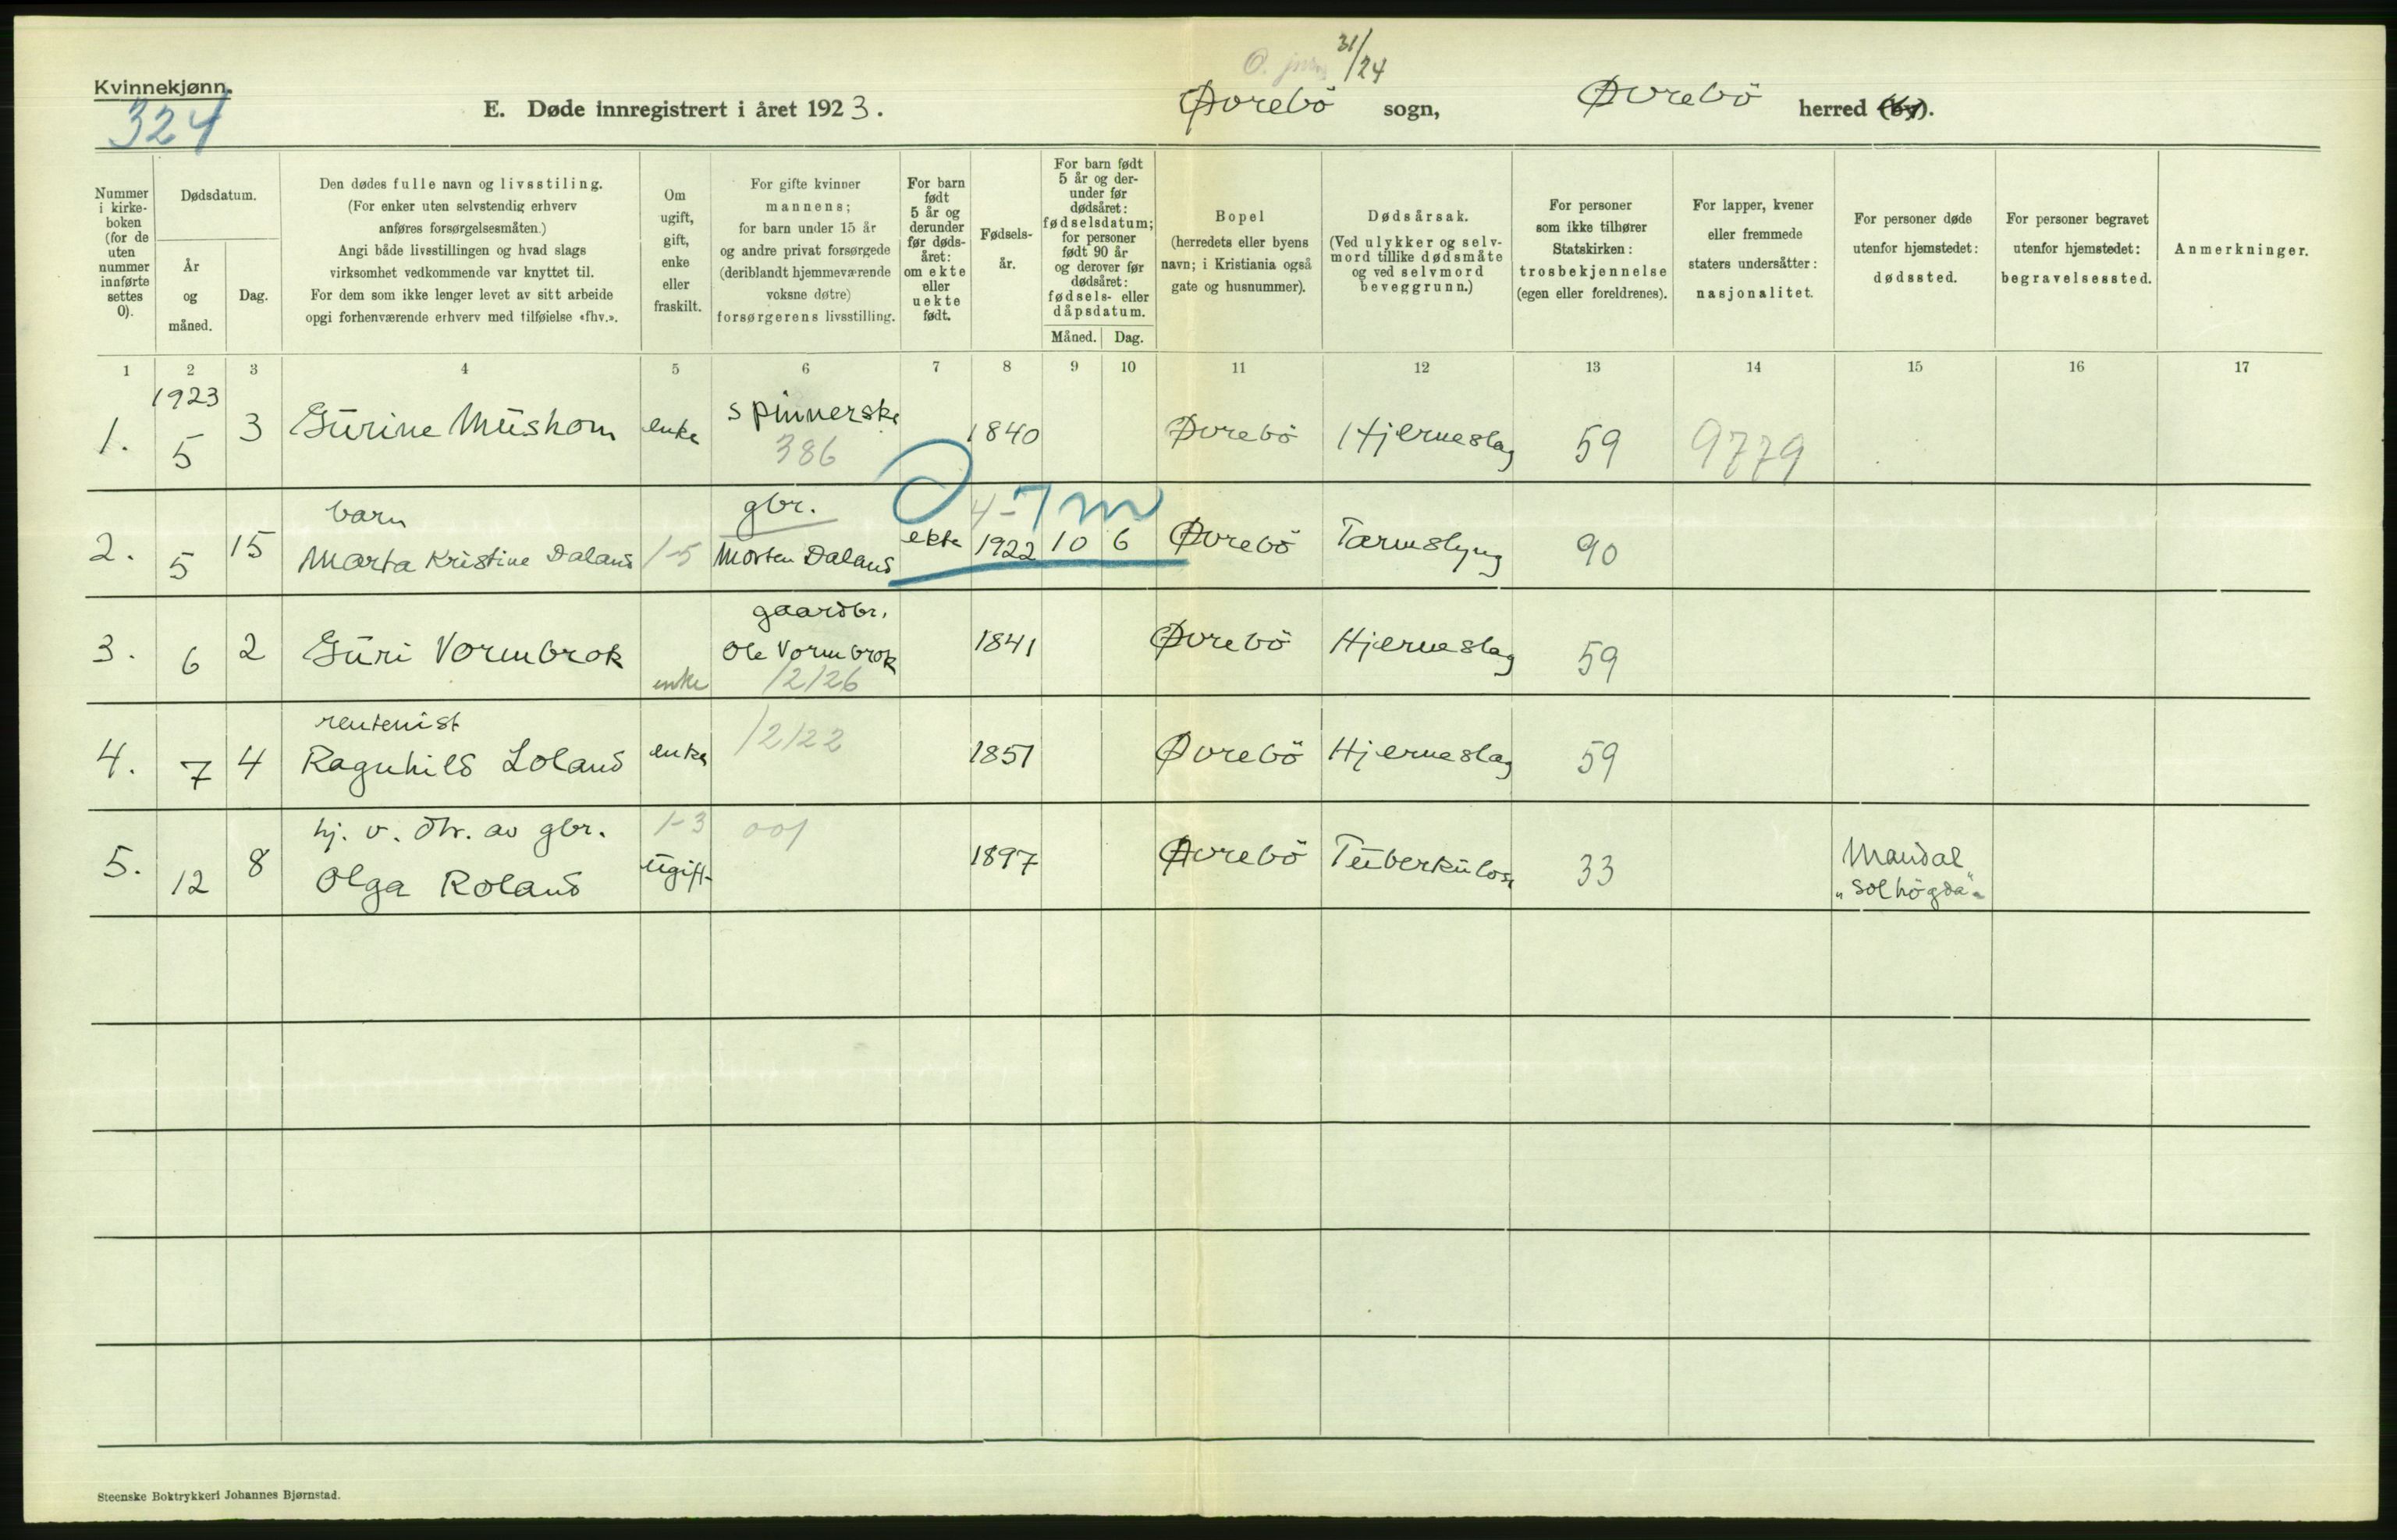 31/24
Kvinnekjønn.
324
E. Døde innregistrert i året 1923. Øvrebö sogn, Øvrebö herred (by).
Nummer i kirkeboken (for de uten nummer innførte settes 0).
Dødsdatum.
År og måned.
Dag.
Den dødes fulle navn og livsstiling.
(For enker uten selvstendig erhverv
anføres forsørgelsesmåten.)
Angi både livsstillingen og hvad slags
virksomhet vedkommende var knyttet til.
For dem som ikke lenger levet av sitt arbeide
opgi forhenværende erhverv med tilføielse «fhv.».
Om ugift, gift, enke eller fraskilt.
For gifte kvinner
mannens;
for barn under 15 år
og andre privat forsørgede
(deriblandt hjemmeværende
voksne døtre)
forsørgerens livsstilling.
For barn født 5 år og derunder før dødsåret: om ekte eller uekte født.
Fødsels-
år.
For barn født
5 år og der-
under før
dødsåret:
fødselsdatum;
for personer
født 90 år
og derover før
dødsåret:
fødsels- eller
dåpsdatum.
Måned. Dag.
Bopel
(herredets eller byens
navn; i Kristiania også
gate og husnummer).
Dødsårsak.
(Ved ulykker og selv-
mord tillike dødsmåte
og ved selvmord
beveggrunn.)
For personer
som ikke tilhører
Statskirken:
trosbekjennelse
(egen eller foreldrenes).
For lapper, kvener
eller fremmede
staters undersåtter:
nasjonalitet.
For personer døde
utenfor hjemstedet:
dødssted.
For personer begravet
utenfor hjemstedet:
begravelsessted.
Anmerkninger.
1 2 3 4 5 6 7 8 9 10 11 12 13 14 15 16 17
1923
1. 5 3 Gurine Mushom enke spinnerske 1840 Øvrebö Hjerneslag 59 9779
386
barn gbr. 4-7m
2. 5 15 Marta Kristine Daland 1-5 Morten Daland ekte 1922 10 6 Øvrebö Tarmslyng 90
gaardbr.
3. 6 2 Guri Vormbrok enke Ole Vormbrok 1841 Øvrebö Hjerneslag 59
12126
rentenist 12122
4. 7 4 Ragnhild Loland enke 1851 Øvrebö Hjerneslag 59
hj. v. dtr. av gbr. 1-3 001
5. 12 8 Olga Roland ugift 1897 Øvrebö Tuberkulose 33 Mandal
"Solhögda".
Steenske Boktrykkeri Johannes Bjørnstad.